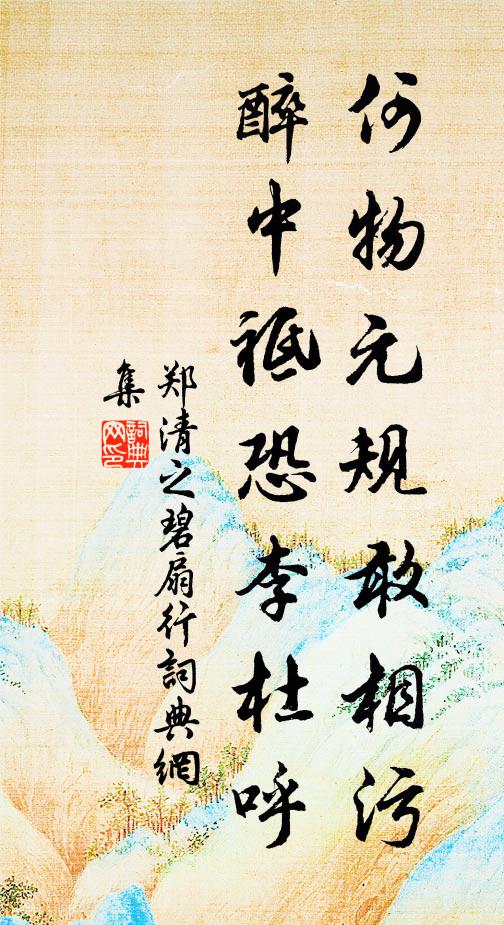 何物元规敢相污
醉中祗恐李杜呼
郑清之碧扇行词典網
集
詞典
网印